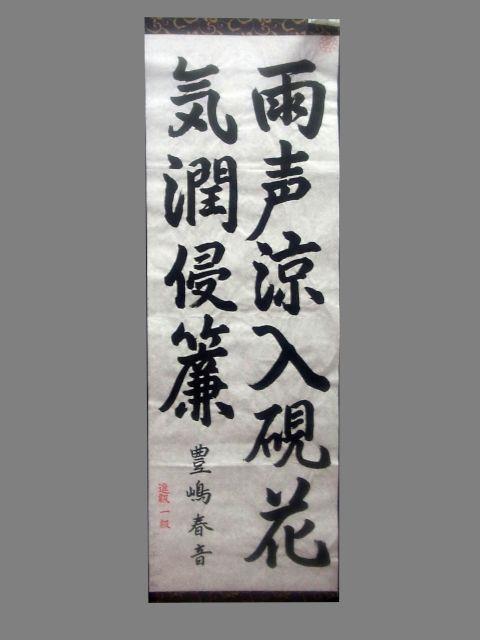 雨声涼入硯花
気潤侵簾
豊嶋春音
進級一級